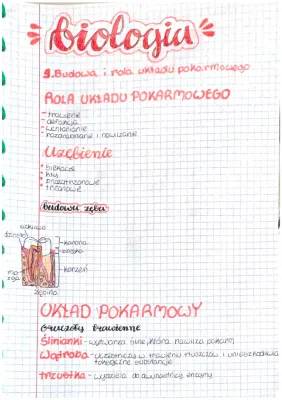 biologia
9. Budowa i rola układu pokarmowego
ROLA UKŁADU POKARMOWEGO
- trawienie
- defekacja
- wchłanianie
- rozdrabnianie i nawilżanie
Uzębienie
• siekacze
• kły
• przedtrzonowe
• trzonowe
budowa zęba
szkliwo
korona
szyjka
korzeń
UKŁAD POKARMOWY
Gruczoły trawienne
Ślinianki - wytwarza ślinę, która nawilża pokarm
Wątroba - uczestniczy w trawieniu tłuszczów i unieszkodliwia
toksyczne substancje
Trzustka - wydziela do dwunastnicy enzymy